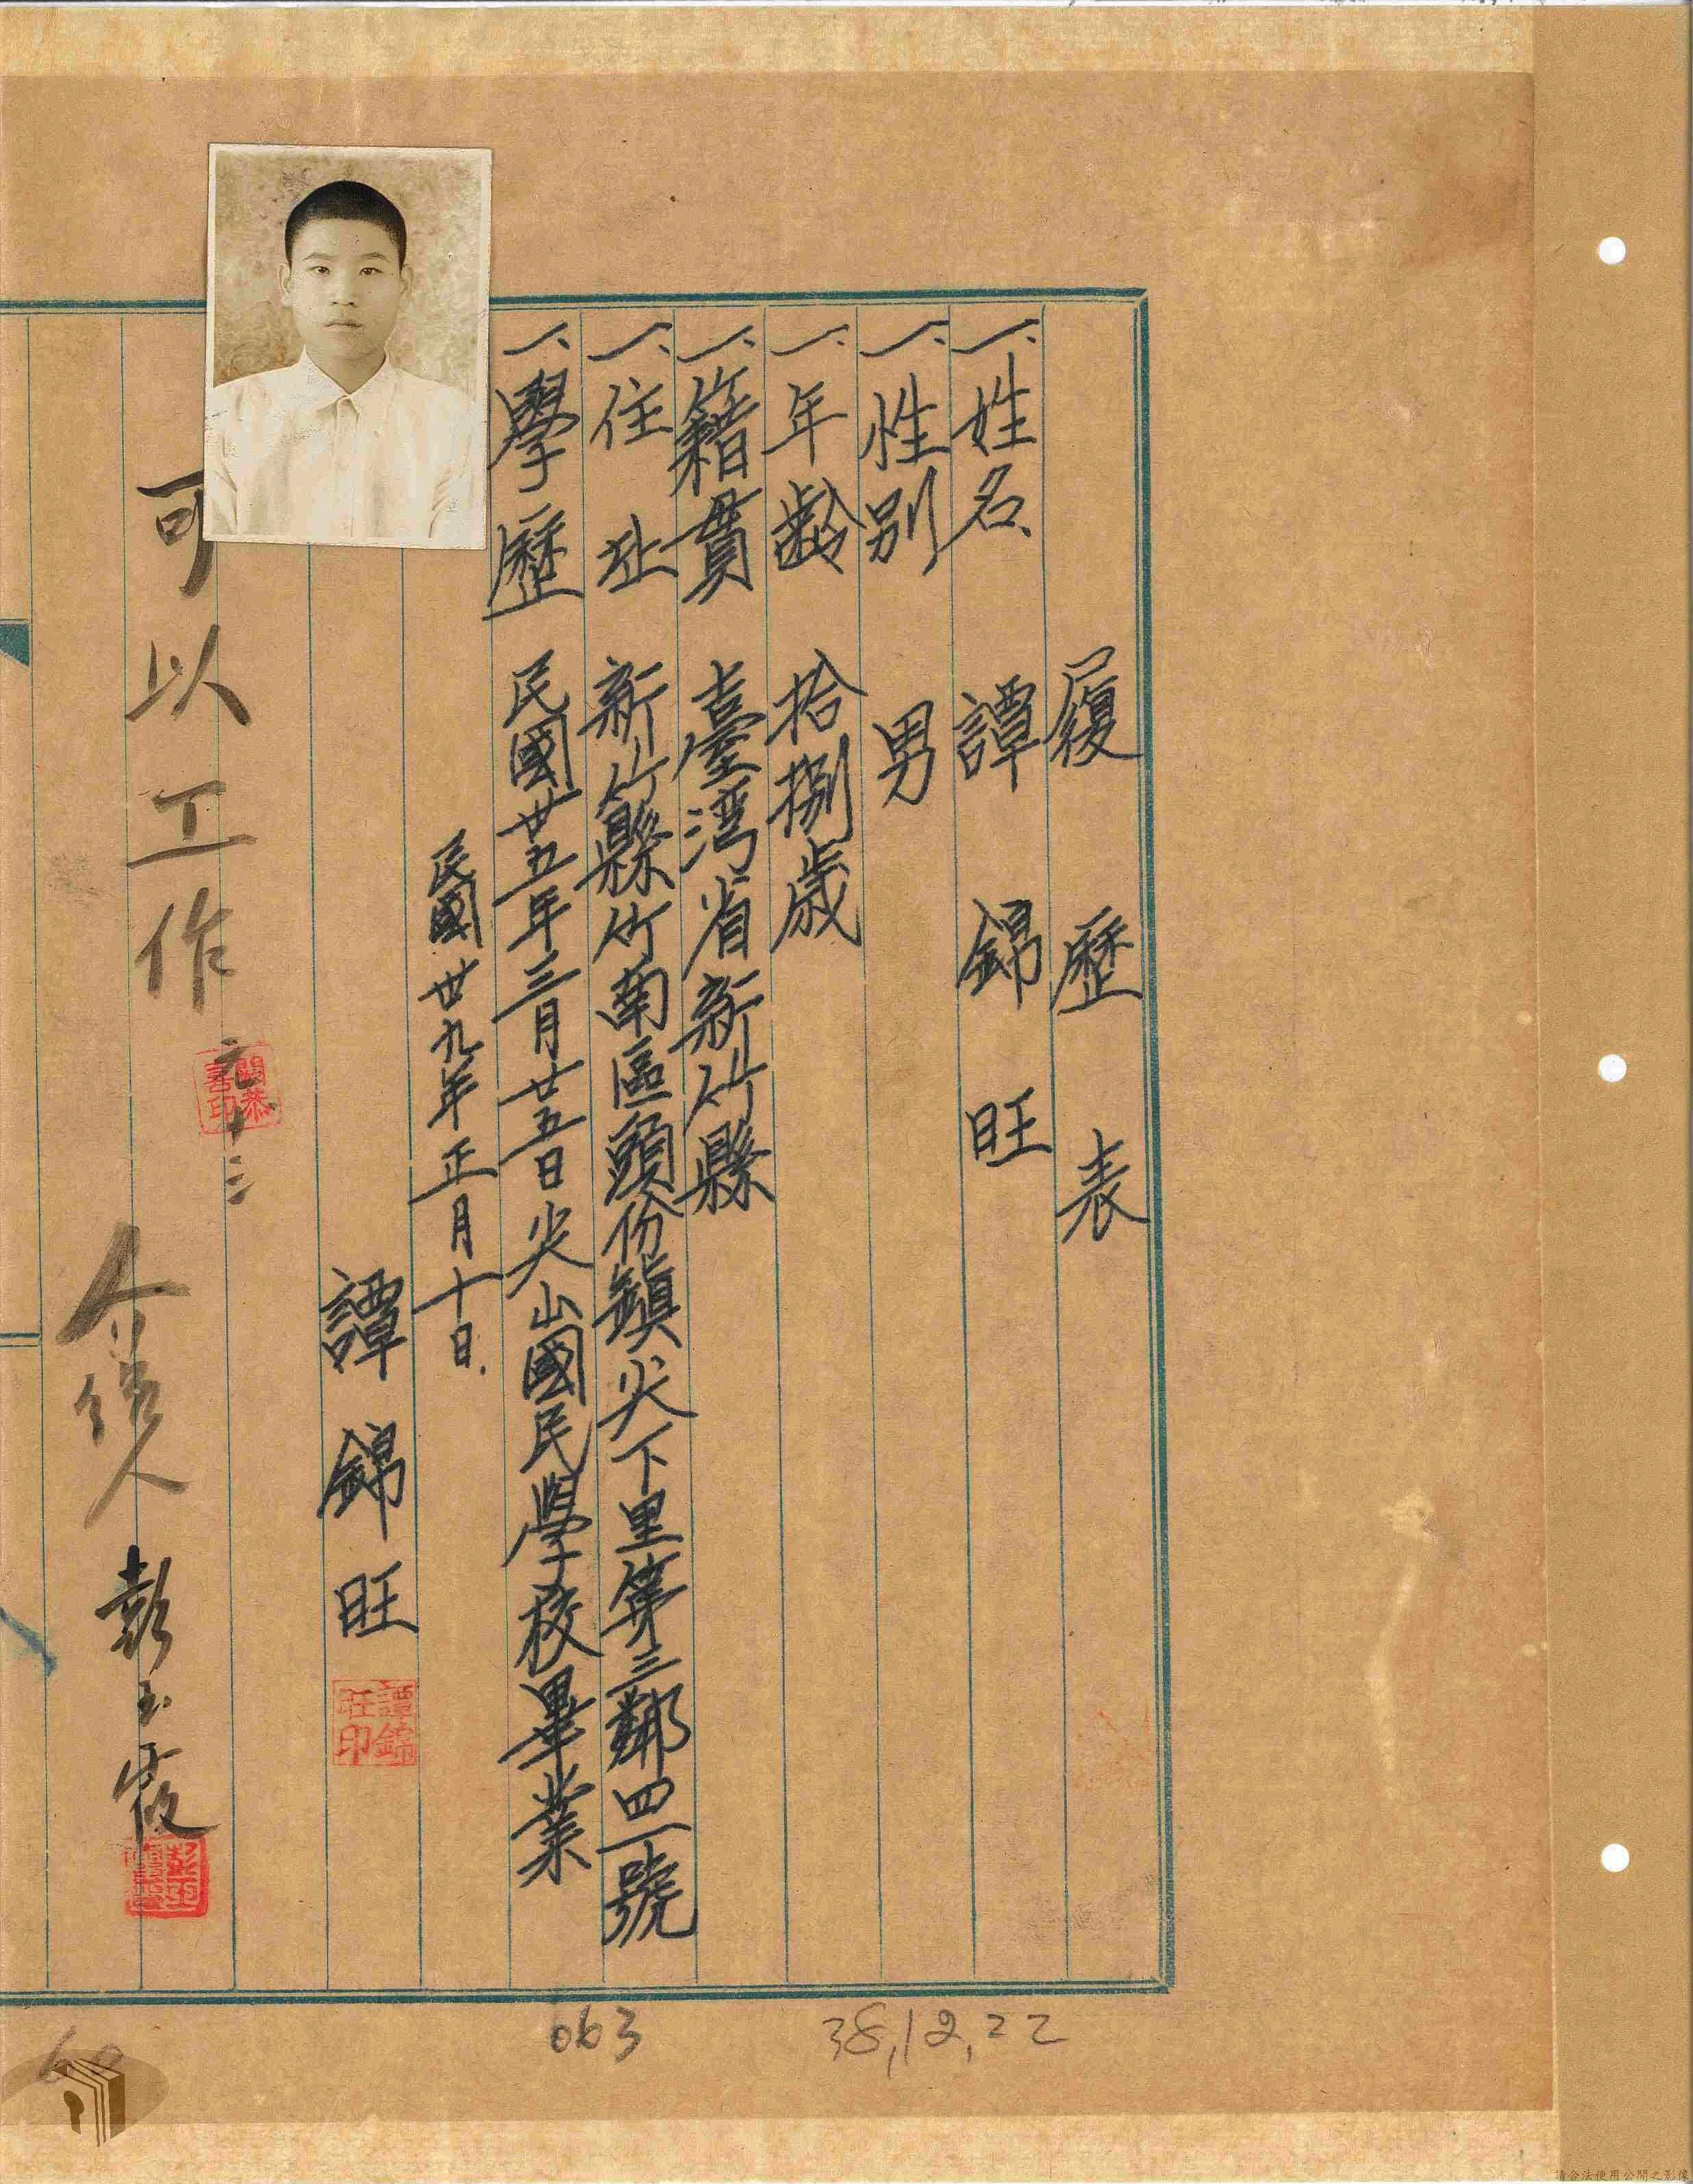 履歷表
一、姓名 譚錦旺
一、性別 男
一、年齡 拾捌歲
一、籍貫 臺湾省新竹縣
一、住址 新竹縣竹南區頭份鎮尖下里第三鄰四一號
一、學歷 民國廿五年三月廿五日尖山國民學校畢業
民國廿九年正月十日
譚錦旺
譚錦旺印
可以工作
元、十三
介紹人 彭玉霞
063
38,12,22
請合法使用公開之影像